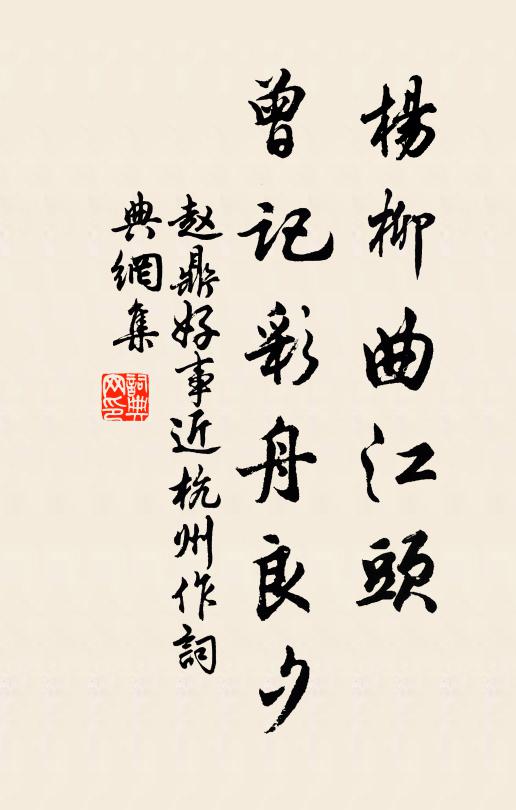 楊柳曲江頭
曾记彩舟良夕
赵鼎好事近杭州作詞
典網集
詞典
网印